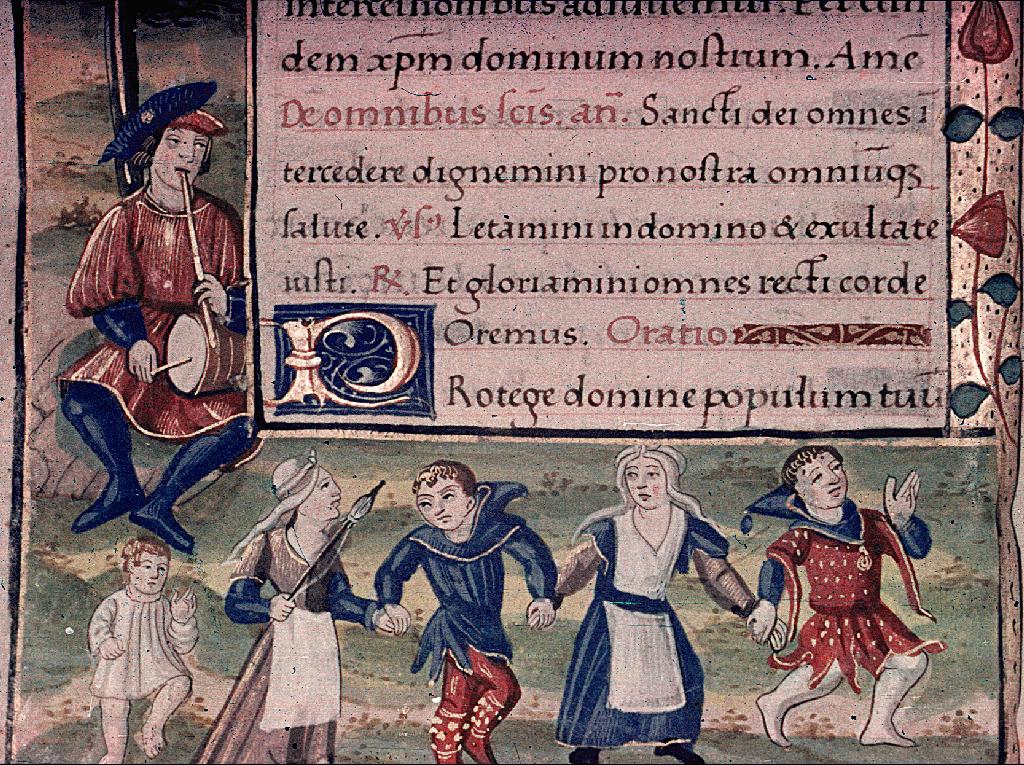 intercessionibus adiuvemur. Per eun
dem xp̄m dominum nostrum. Amē
De omnibus scīs. an̄. Sancti dei omnes ī
tercedere dignemini pro nostra omniūqꝫ
salute. v̄s. Letamini in domino & exultate
iusti. R̸. Et gloriamini omnes recti corde
Oremus. Oratio
PRotege domine populum tuū